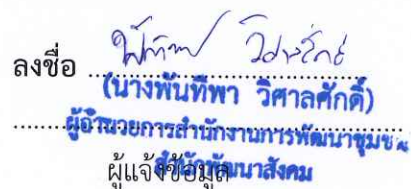 ลงชื่อ
(นางพันทีพา วิศาลศักดิ์)
ผู้อำนวยการสำนักงานการพัฒนาชุมชน
สำนักพัฒนาสังคม
ผู้แจ้งข้อมูล